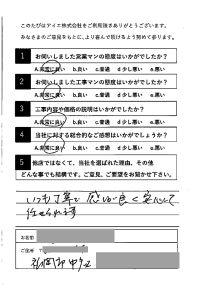 このたびはアイエ株式会社をご利用頂きありがとうございます。
みなさまのご意見をもとに、より喜んで頂けるよう努めて参ります。
1 お伺いしました営業マンの態度はいかがでしたか？
A.非常に良い B.良い C.普通 d.少し悪い e.悪い
2 お伺いしました工事マンの態度はいかがでしたか？
A.非常に良い B.良い C.普通 d.少し悪い e.悪い
3 工事内容や価格の説明はいかがでしたか？
A.非常に良い B.良い C.普通 d.少し悪い e.悪い
4 当社に対する総合的なご感想はいかがでしょうか？
A.非常に良い B.良い C.普通 d.少し悪い e.悪い
5 他店ではなくて、当社を選ばれた理由、その他
どんな事でも結構です。ご意見、ご要望をお聞かせ下さい。
いつも丁寧で感じが良く安心して
任せられます
お名前
ご住所 〒